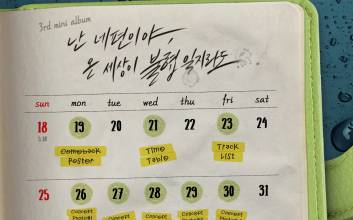 3rd mini album
난 네편이야,
온 세상이 불협일지라도
sun mon tue wed thu fri sat
18 19 20 21 22 23 24
Comeback Time Track
Poster Table List
25 26 27 28 29 30 31
Concept Concept Concept Concept Concept